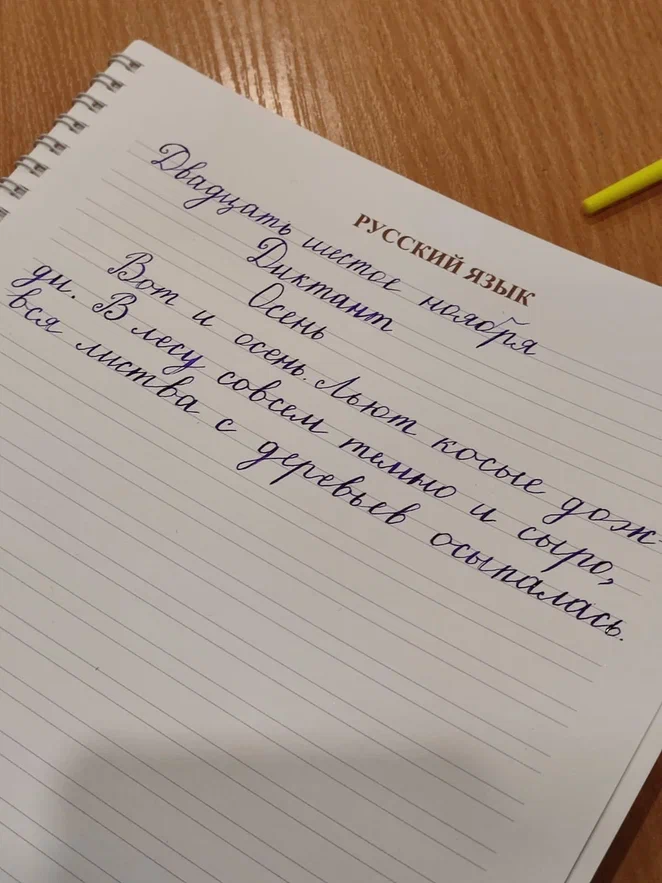 РУССКИЙ ЯЗЫК
Двадцать шестое ноября
Диктант
Осень
Вот и осень. Льют косые дож-
ди. В лесу совсем темно и сыро,
вся листва с деревьев осыпалась.